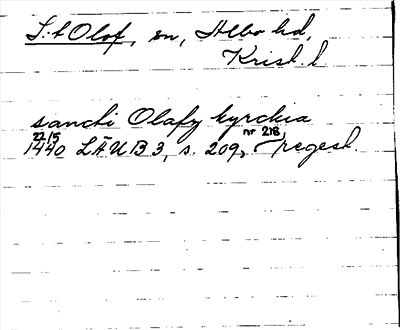 S:t Olof, sn, Albo hd,
Krist. l
sancti Olafz kyrckia
22/5 nr 218
1440 LÄUB 3, s. 209, regest.